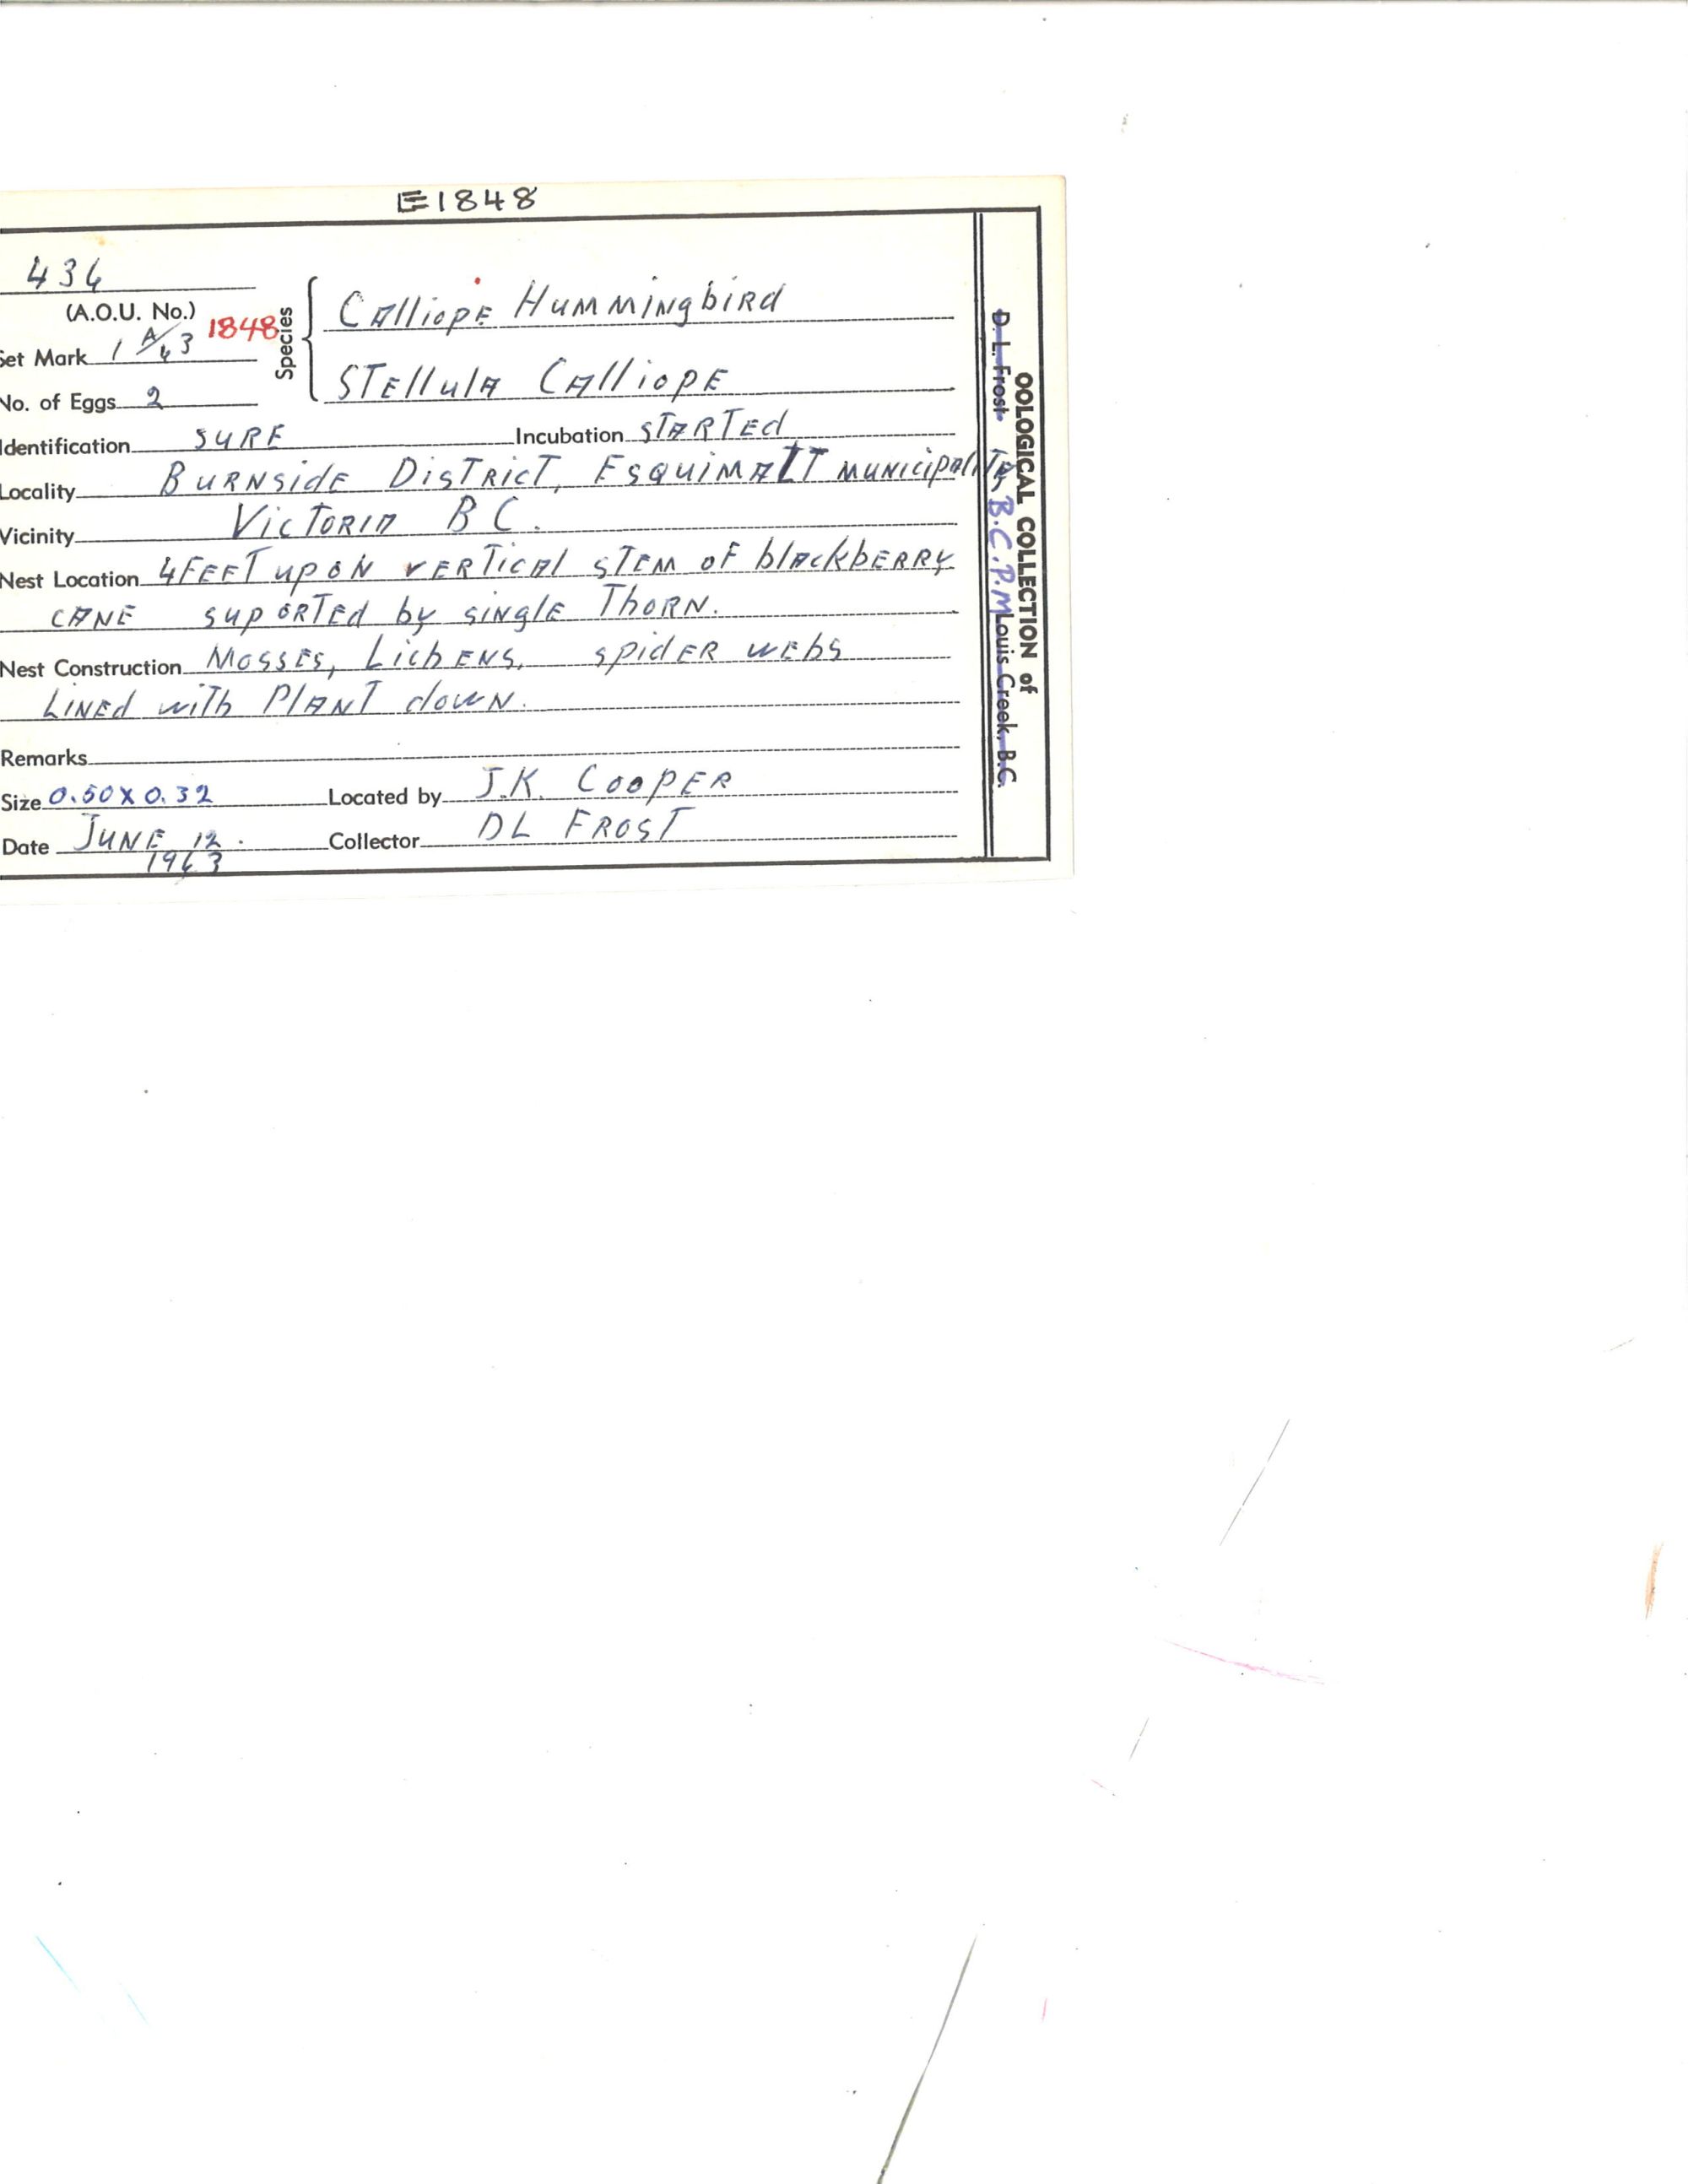 E1848
436
(A.O.U. No.)
1848
Set Mark 1 A/63
No. of Eggs 2
Species
Calliope Hummingbird
Stellula Calliope
Identification SURE Incubation STARTED
Locality Burnside District, Esquimalt Municipality
Vicinity Victoria B C.
Nest Location 4 FEET up on vertical stem of blackberry
cane suported by single Thorn.
Nest Construction Mosses, Lichens, spider webs
Lined with Plant down.
Remarks
Size 0.50 X 0.32 Located by J.K. Cooper
Date June 12. Collector DL Frost
1963
OOLOGICAL COLLECTION of
D. L. Frost B.C.P.M Louis Creek, B.C.